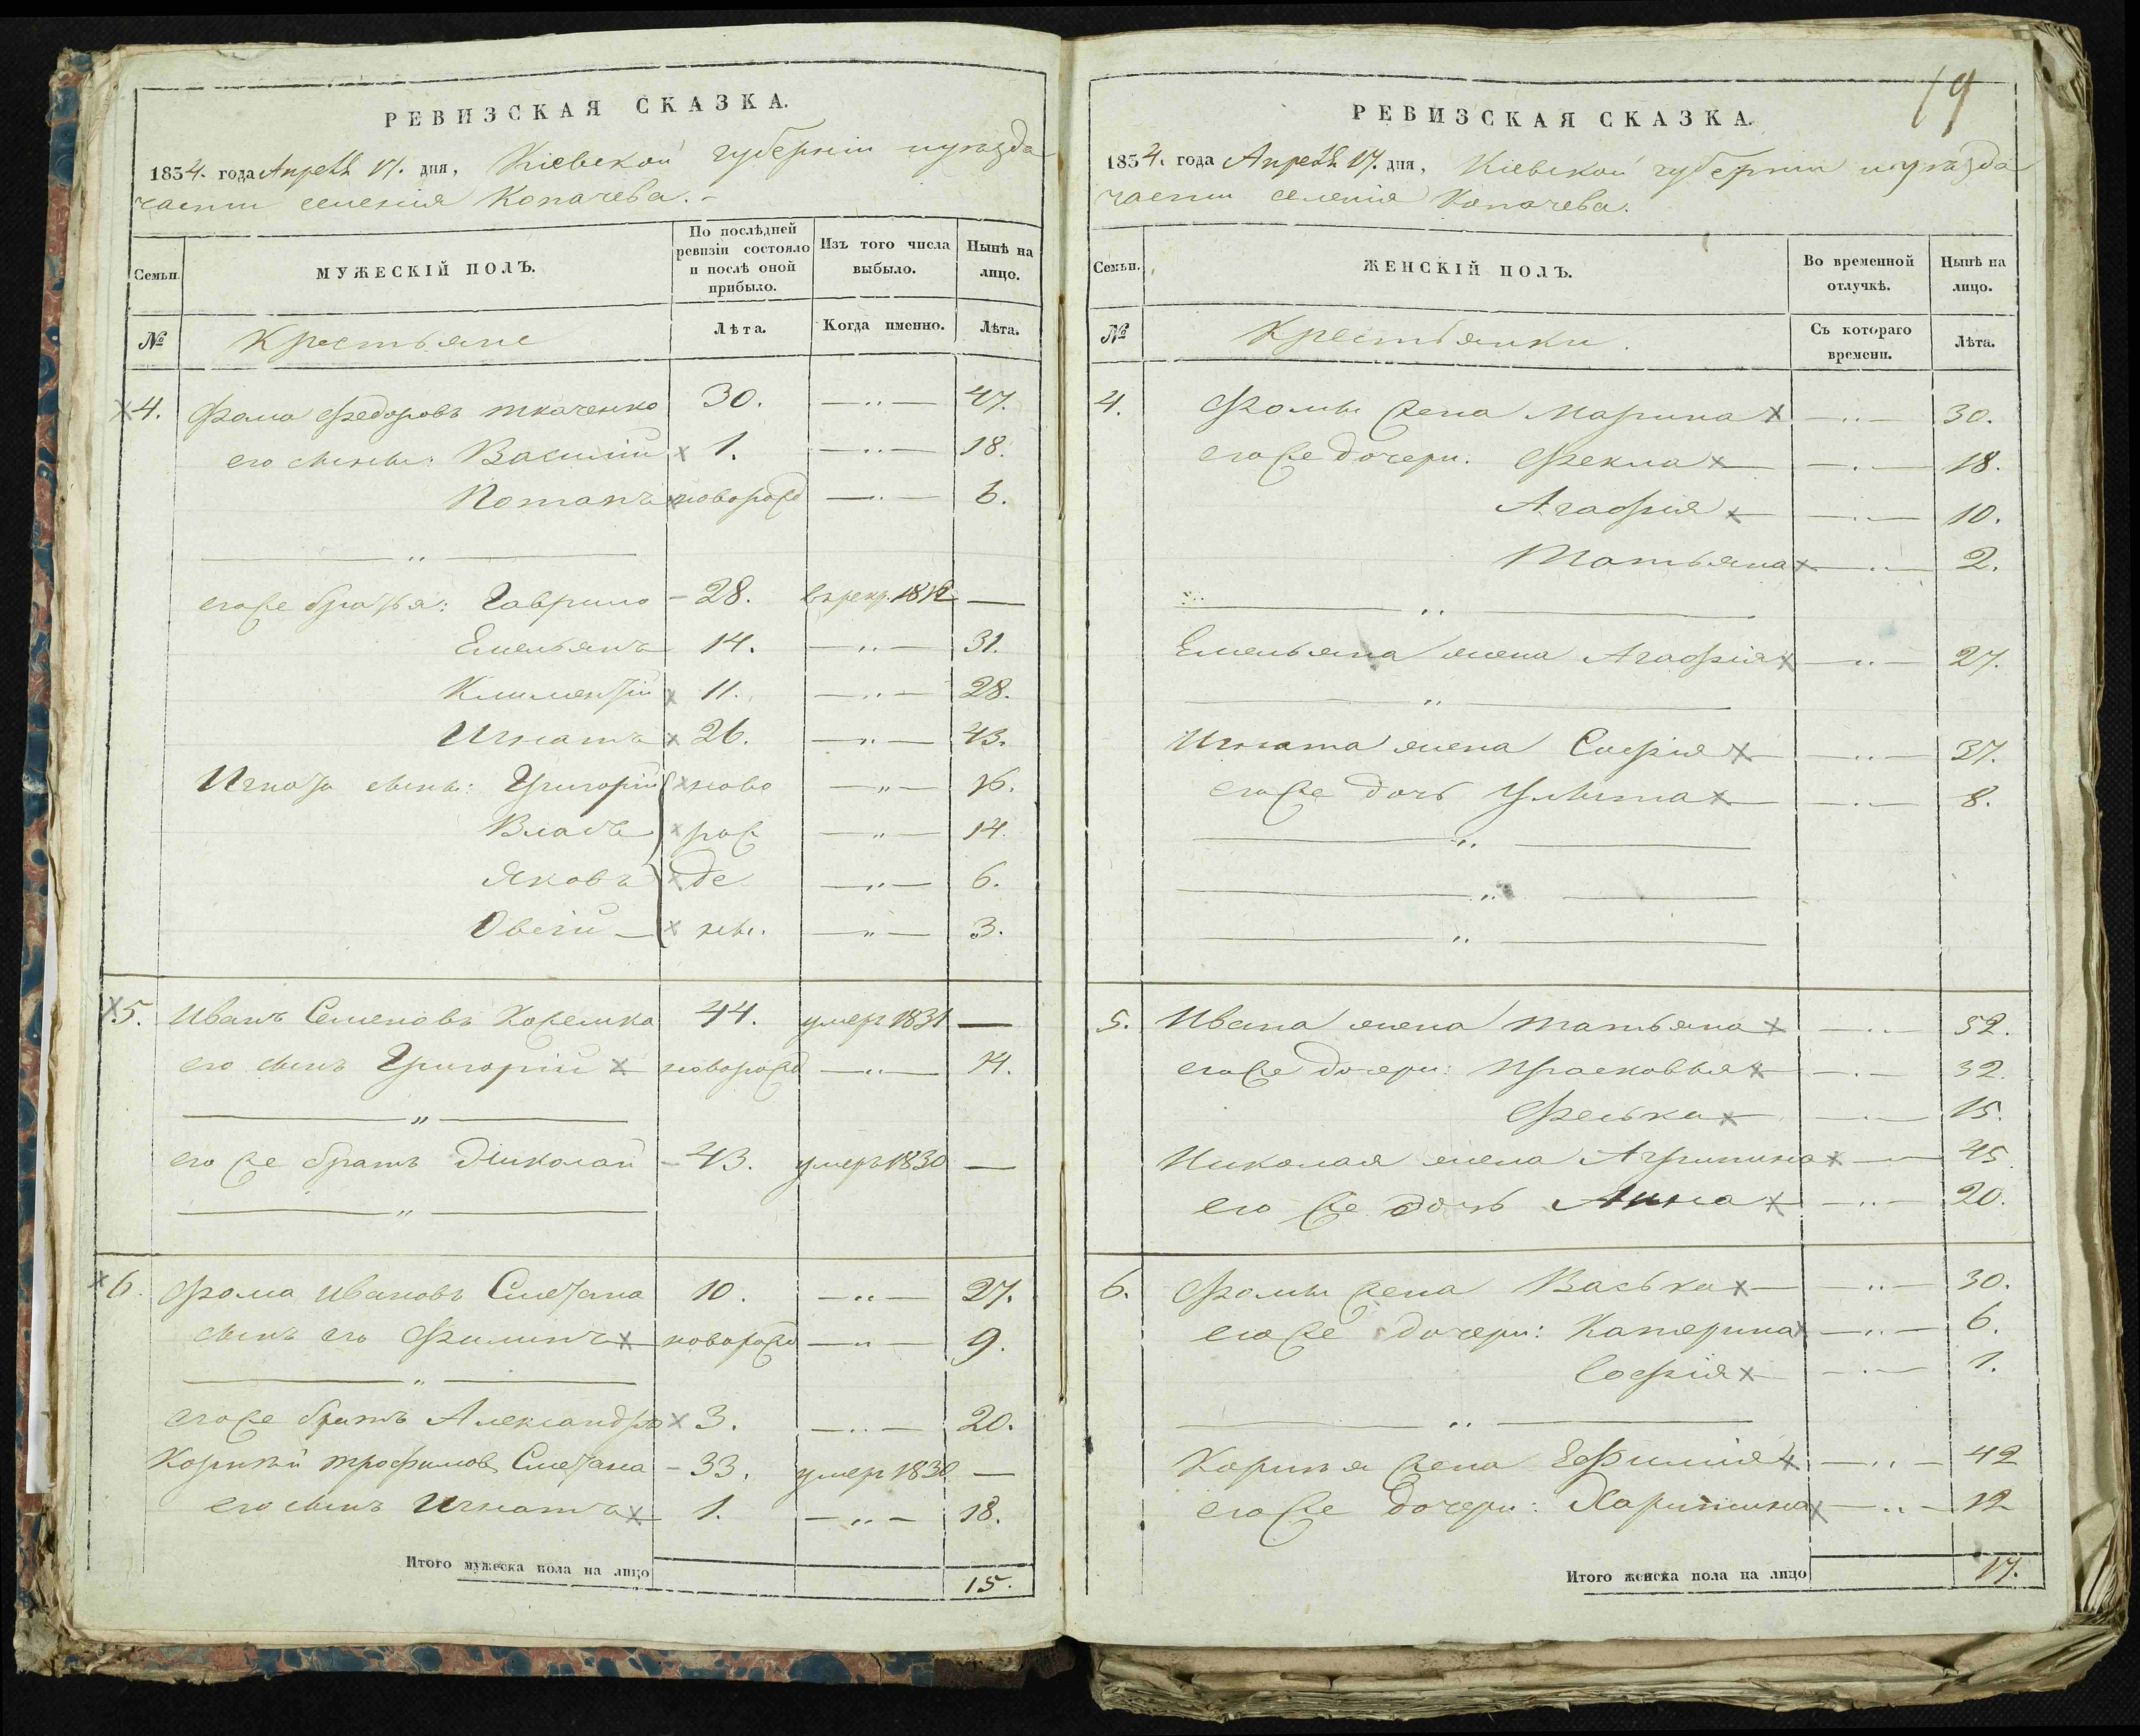 РЕВИЗСКАЯ СКАЗКА.
1834. года Апреля 17. дня, Кіевской губерніи и уѣзда
части селенія Копачева.
Семьи.
МУЖЕСКІЙ ПОЛЪ.
По послѣдней ревизіи состояло и послѣ оной прибыло.
Изъ того числа выбыло.
Нынѣ на лицо.
№
Крестьяне
Лѣта.
Когда именно.
Лѣта.
4. Фома Федоровъ Ткаченко 30. —"— 47.
его сыны: Василій 1. —"— 18.
Потапъ новорожд —"— 6.
—"—
егоже братья: Гаврило 28. въ рекр. 1812 —
Емельянъ 14. —"— 31.
Климентій 11. —"— 28.
Игнатъ 26. —"— 43.
Игната сыны: Григорій ново —"— 16.
Власъ рож —"— 14.
Яковъ де —"— 6.
Овсій ны. —"— 3.
5. Иванъ Семеновъ 44. умеръ 1831 —
его сынъ Григорій новорожд —"— 14.
—"—
его же братъ Николай 43. умеръ 1830 —
—"—
6. Фома Ивановъ Сметана 10. —"— 27.
сынъ его Филипъ новорожд —"— 9.
—"—
егоже братъ Александръ 3. —"— 20.
Корнѣй Трофимовъ Сметана 33. умеръ 1830 —
его сынъ Игнатъ 1. —"— 18.
Итого мужеска пола на лицо 15.
19
РЕВИЗСКАЯ СКАЗКА.
1834. года Апреля 17. дня, Кіевской губерніи и уѣзда
части селенія Копачева.
Семьи.
ЖЕНСКІЙ ПОЛЪ.
Во временной отлучкѣ.
Нынѣ на лицо.
№
Крестьянки.
Съ котораго времени.
Лѣта.
4. Фомы жена Марина —"— 30.
егоже дочери: Фекла —"— 18.
Агафія —"— 10.
Татьяна —"— 2.
—"—
Емельяна жена Агафія —"— 27.
—"—
Игната жена Софія —"— 37.
егоже дочь Улита —"— 8.
—"—
—"—
—"—
5. Ивана жена Татьяна —"— 52.
егоже дочери: Прасковья —"— 32.
Феська —"— 15.
Николая жена Агрипина —"— 45.
его же дочь Анна —"— 20.
6. Фомы жена Васька —"— 30.
егоже дочери: Катерина —"— 6.
Софія —"— 1.
—"—
Корнѣя жена Ефимія —"— 42
егоже дочери: Харитина —"— 12
Итого женска пола на лицо 17.